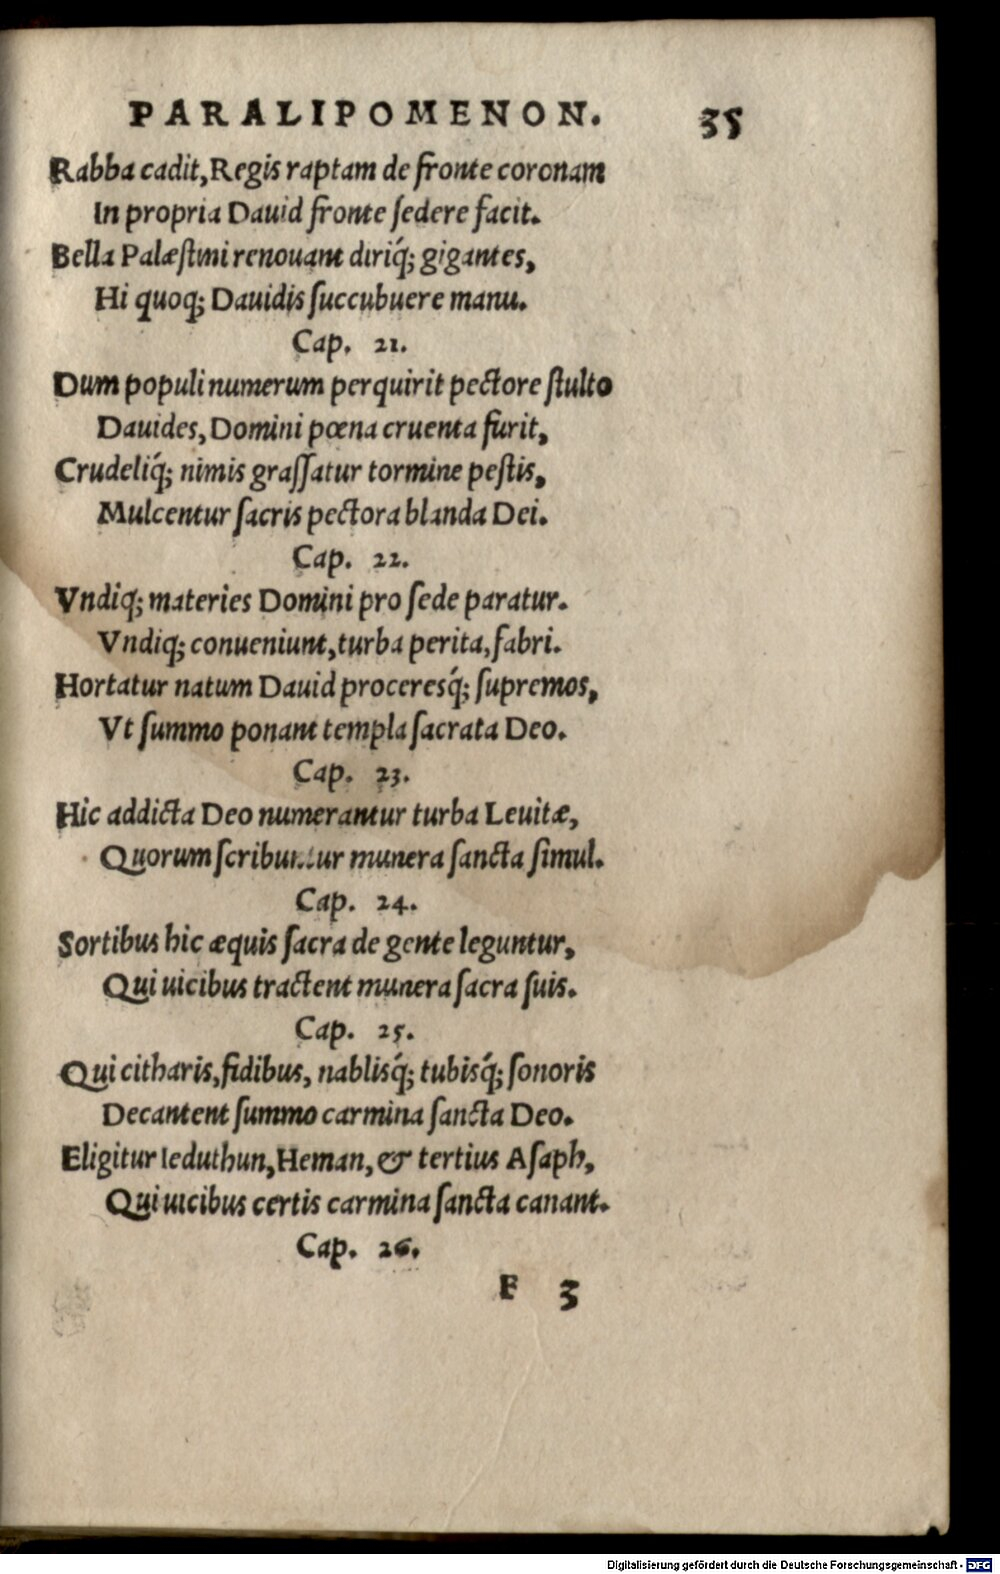 PARALIPOMENON. 35
Rabba cadit, Regis raptam de fronte coronam
In propria Dauid fronte ſedere facit.
Bella Palæſtini renouant diriq́; gigantes,
Hi quoq; Dauidis ſuccubuere manu.
Cap. 21.
Dum populi numerum perquirit pectore ſtulto
Dauides, Domini pœna cruenta furit,
Crudeliq́; nimis graſſatur tormine peſtis,
Mulcentur ſacris pectora blanda Dei.
Cap. 22.
Vndiq; materies Domini pro ſede paratur.
Vndiq; conueniunt, turba perita, fabri.
Hortatur natum Dauid proceresq́; ſupremos,
Vt ſummo ponant templa ſacrata Deo.
Cap. 23.
Hic addicta Deo numerantur turba Leuitæ,
Quorum ſcribuntur munera ſancta ſimul.
Cap. 24.
Sortibus hic æquis ſacra de gente leguntur,
Qui uicibus tractent munera ſacra ſuis.
Cap. 25.
Qui citharis, fidibus, nablisq́; tubisq́; ſonoris
Decantent ſummo carmina ſancta Deo.
Eligitur Ieduthun, Heman, & tertius Aſaph,
Qui uicibus certis carmina ſancta canant.
Cap. 26.
F 3
Digitalisierung gefördert durch die Deutsche Forschungsgemeinschaft - DFG